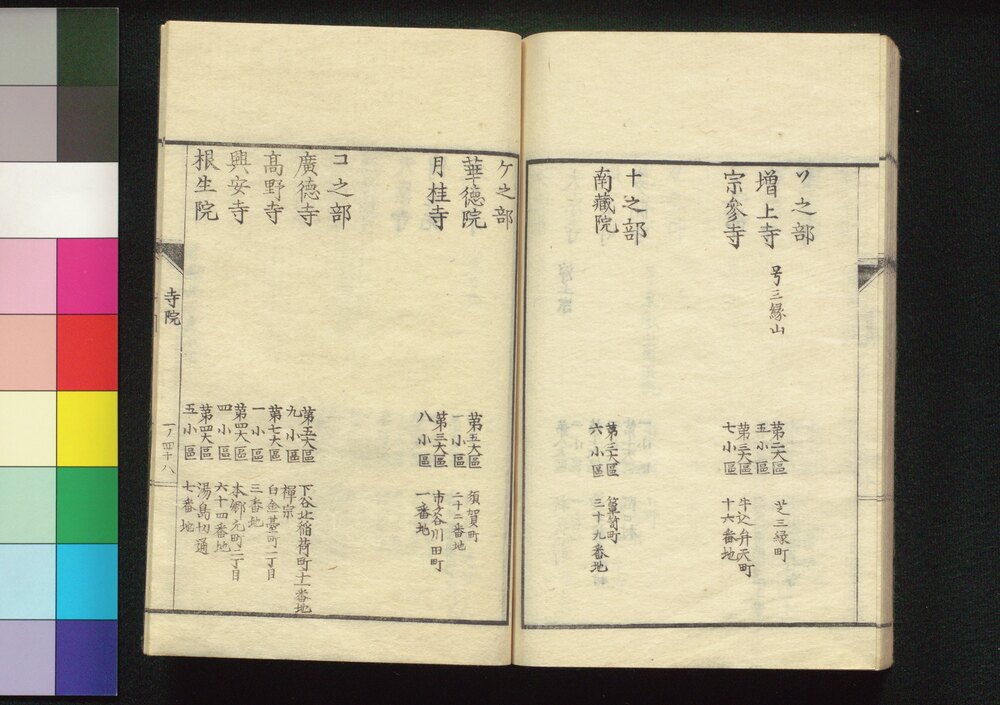 ソ之部
増上寺 号三縁山 第二大區五小區 芝三縁町
宗參寺 第三大區七小區 牛込弁天町十六番地
ナ之部
南藏院 第三大區六小區 箪笥町三十九番地
ケ之部
華德院 第五大區一小區 須賀町二十二番地
月桂寺 第三大區八小區 市ヶ谷川田町一番地
コ之部
廣德寺 第五大區九小區 下谷北稲荷町十一番地 禪宗
高野寺 第七大區一小區 白金臺町二丁目三番地
興安寺 第四大區四小區 本郷元町二丁目六十四番地
根生院 第四大區五小區 湯島切通七番地
寺院
一ノ四十八